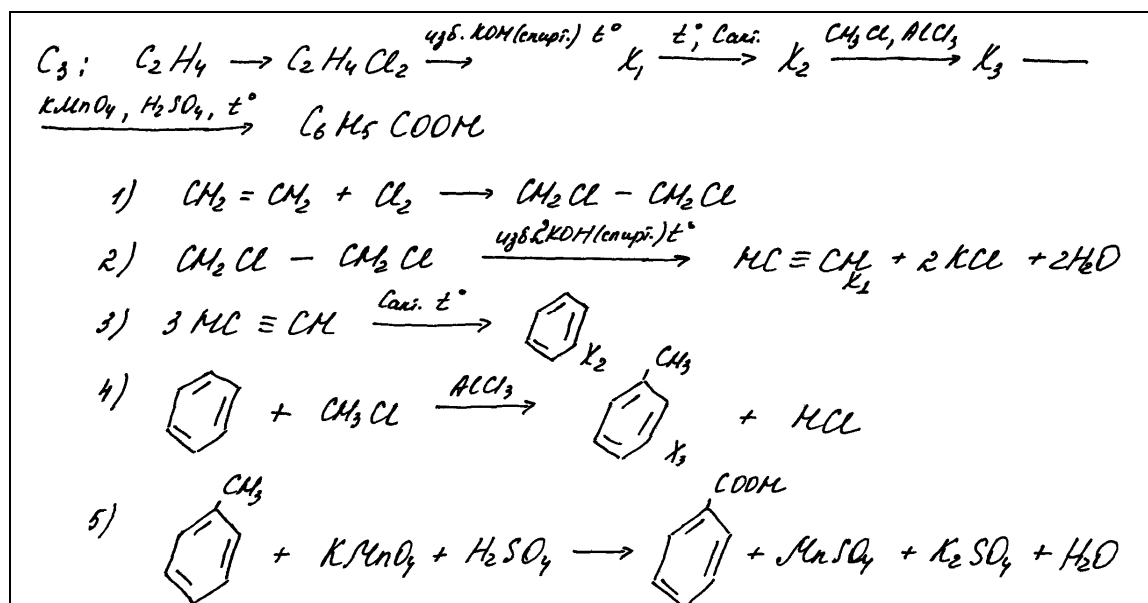 C₃: C₂H₄ → C₂H₄Cl₂ —изб. KOH(спирт.) t°→ X₁ —t°, Cакт.→ X₂ —CH₃Cl, AlCl₃→ X₃ —
—KMnO₄, H₂SO₄, t°→ C₆H₅COOH
1) CH₂ = CH₂ + Cl₂ → CH₂Cl – CH₂Cl
2) CH₂Cl – CH₂Cl —изб. 2KOH(спирт.) t°→ HC ≡ CH + 2KCl + 2H₂O
X₁
3) 3HC ≡ CH —Cакт. t°→ X₂
CH₃
4) + CH₃Cl —AlCl₃→ X₃ + HCl
CH₃ COOH
5) + KMnO₄ + H₂SO₄ → + MnSO₄ + K₂SO₄ + H₂O